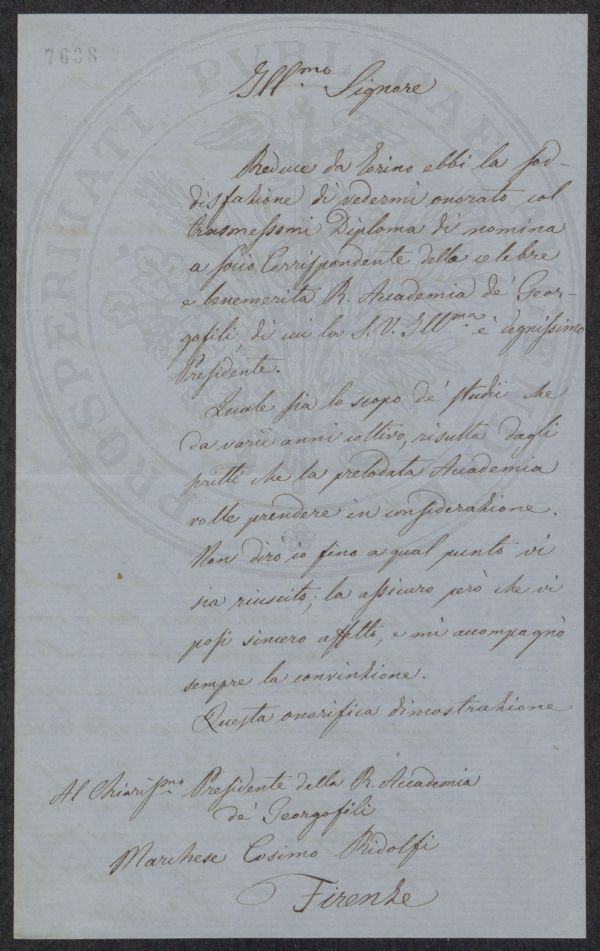 7638
Ill.mo Signore
Reduce da Torino ebbi la sod-
disfazione di vedermi onorato col
trasmessomi Diploma di nomina
a socio Corrispondente della celebre
e benemerita R. Accademia de' Geor-
gofili, di cui la S. V. Ill.ma è degnissimo
Presidente.
Quale sia lo scopo de' studii che
da varii anni coltivo, risulta dagli
scritti che la prelodata Accademia
volle prendere in considerazione.
Non dirò io fino a qual punto vi
sia riuscito; la assicuro però che vi
posi sincero affetto, e mi accompagnò
sempre la convinzione.
Questa onorifica dimostrazione
Al Chiaris.mo Presidente della R. Accademia
de' Georgofili
Marchese Cosimo Ridolfi
Firenze
PROSPERITATI PUBLICAE